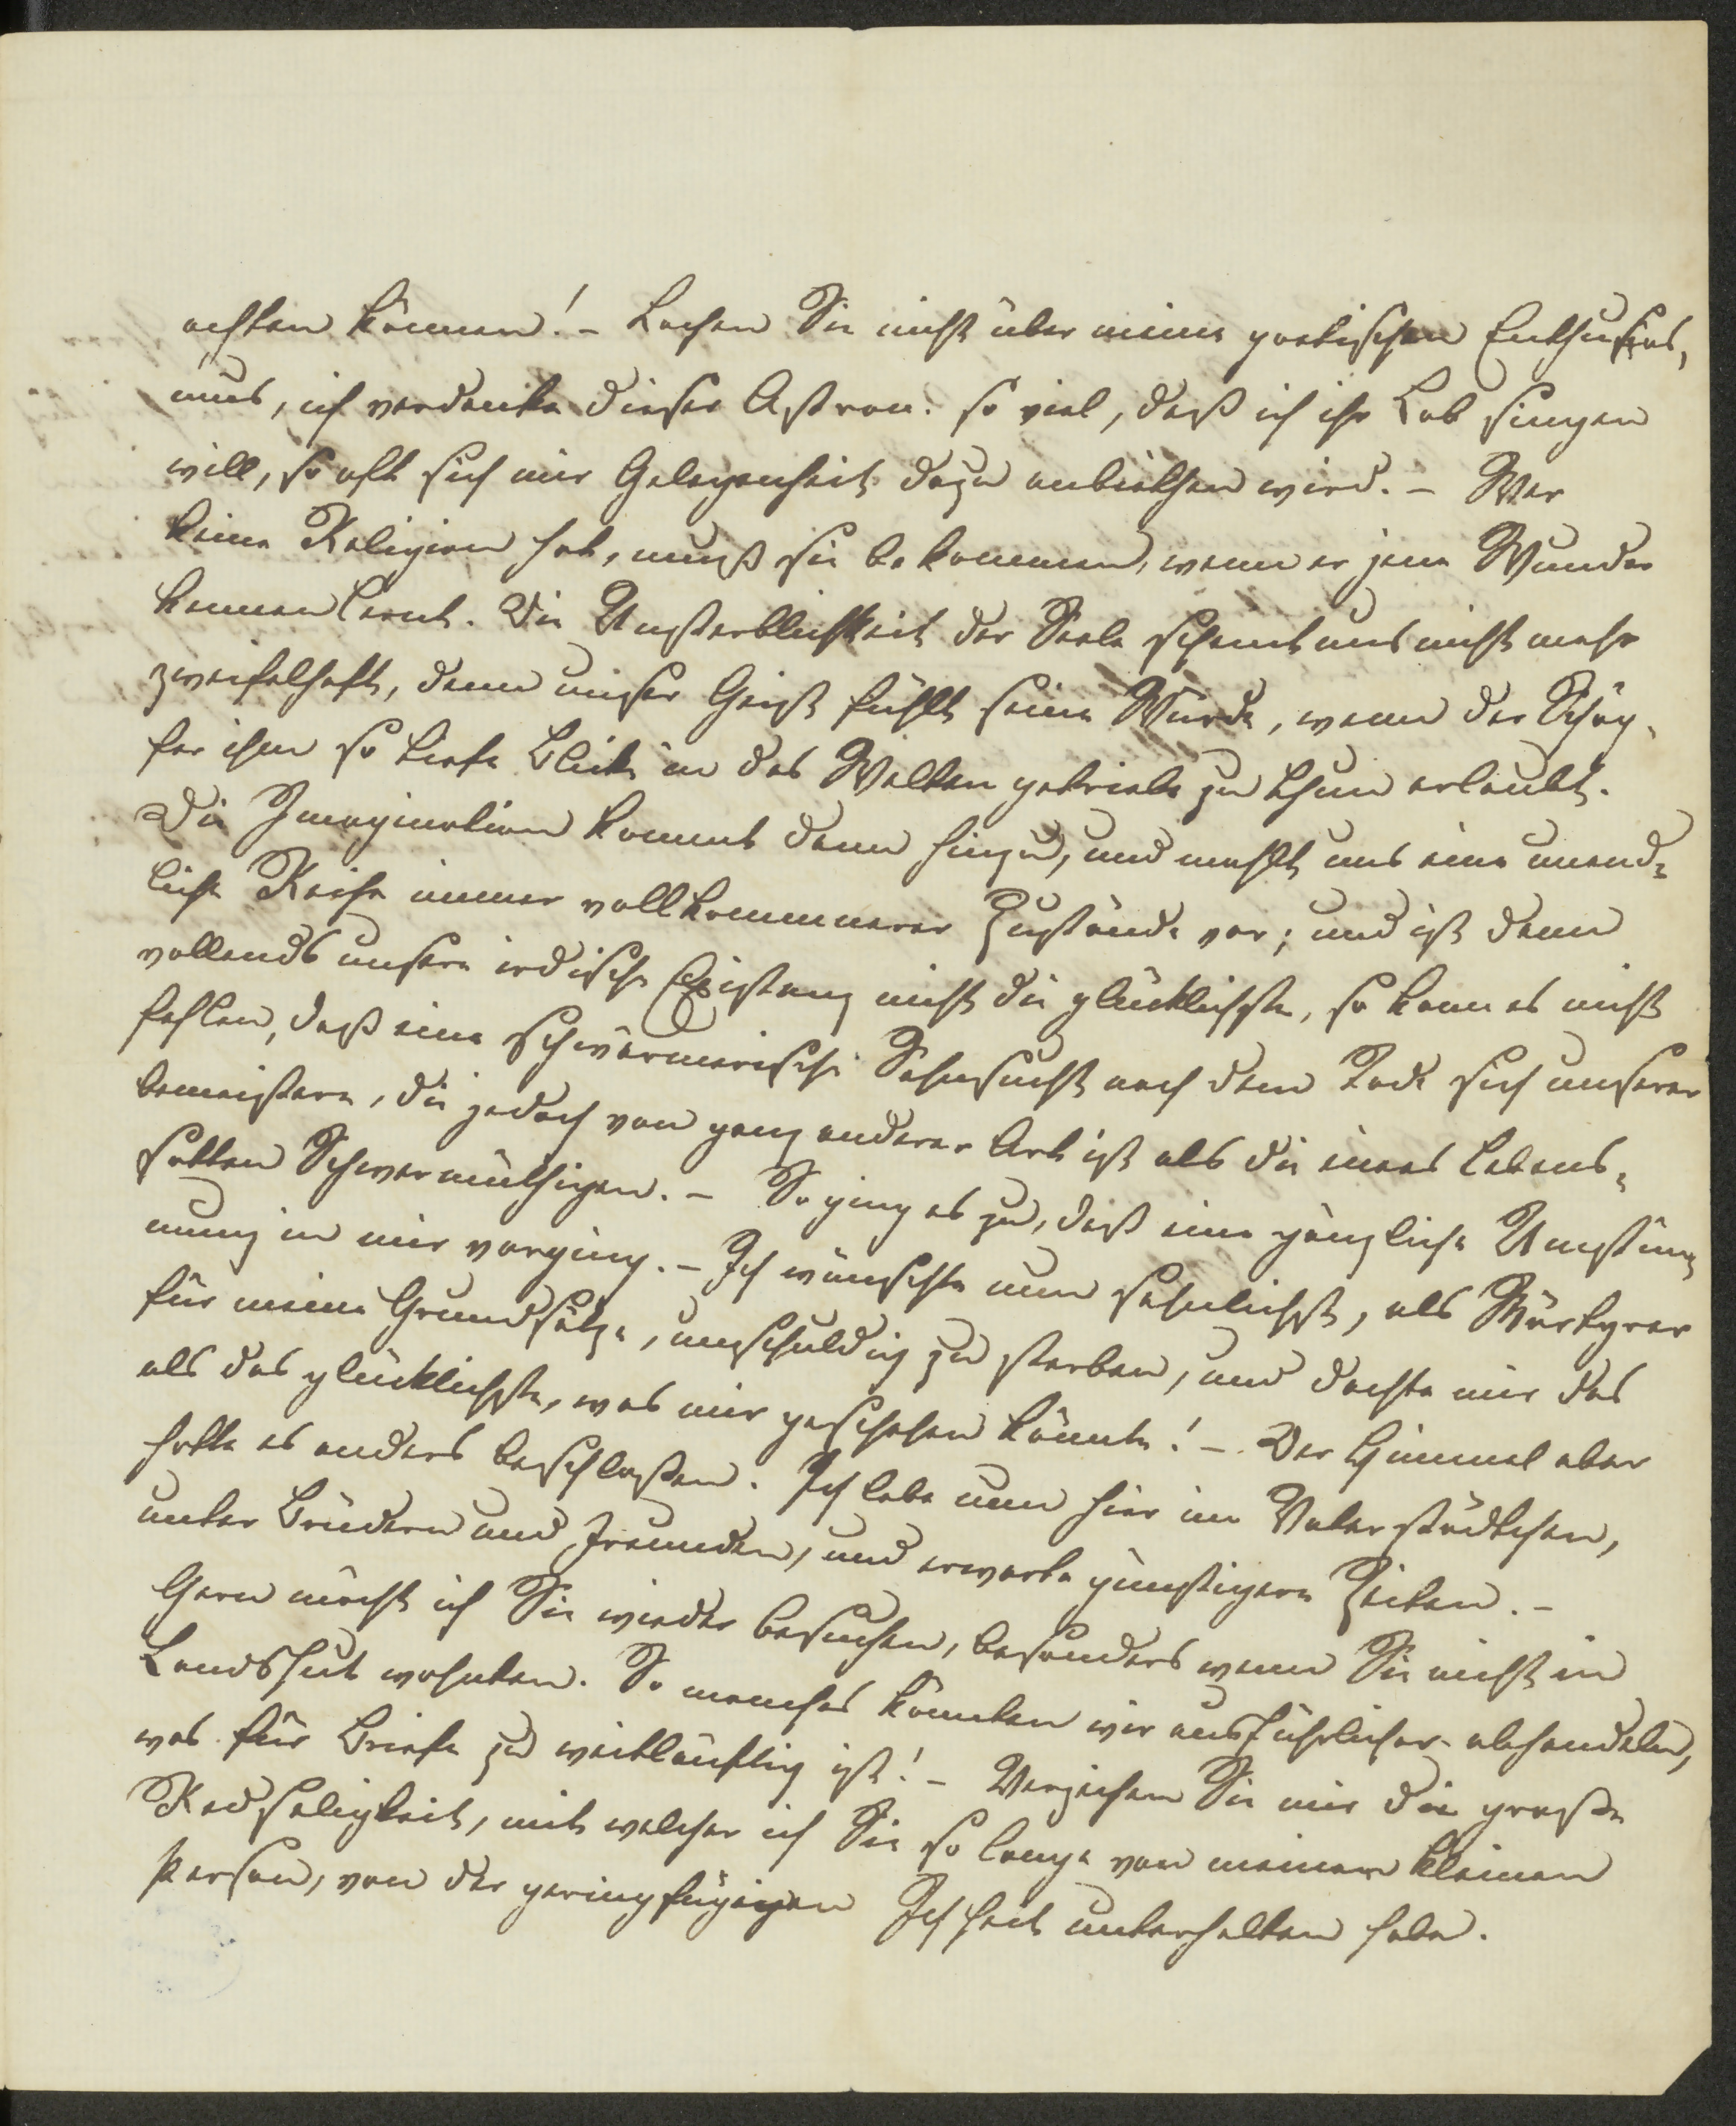 achten können! – Lachen Sie nicht über meinen poetischen Enthusias-
mus, ich verdanke dieser Astron. so viel, daß ich ihr Lob singen
will, so oft sich mir Gelegenheit dazu anbiethen wird. – Wer
keine Religion hat, muß sie bekommen, wenn er jene Wunder
kennen lernt. Die Unsterblichkeit der Seele scheint uns nicht mehr
zweifelhaft, denn unser Geist fühlt seine Würde, wenn der Schöp-
fer ihm so tiefe Blicke in das Weltengetriebe zu thun erlaubt.
Die Imagination kommt dann hinzu, und mahlt uns eine unend-
liche Reihe immer vollkommnerer Zustände vor; und ist dann
vollends unsere irdische Existenz nicht die glücklichste, so kann es nicht
fehlen, daß eine schwärmerische Sehnsucht nach dem Tode sich unserer
bemeistere, die jedoch von ganz anderer Art ist als die eines Lebens-
satten Schwermüthigen. – So ging es zu, daß eine gänzliche Umstim-
mung in mir vorging. – Ich wünschte nun sehnlichst, als Märtyrer
für meine Grundsätze, unschuldig zu sterben, und dachte mir das
als das glücklichste, was mir geschehen könnte! – Der Himmel aber
hatte es anders beschlossen. Ich lebe nun hier im Vaterstädtchen,
unter Brüdern und Freunden, und erwarte günstigere Zeiten. –
Gern möcht ich Sie wieder besuchen, besonders wenn Sie nicht in
Landshut wohnten. So manches könnten wir ausführlicher abhandeln,
was für Briefe zu weitläuftig ist! – Verzeihen Sie mir die große
Redseligkeit, mit welcher ich Sie so lange von meiner kleinen
Person, von der geringfügigen Ichheit unterhalten habe.